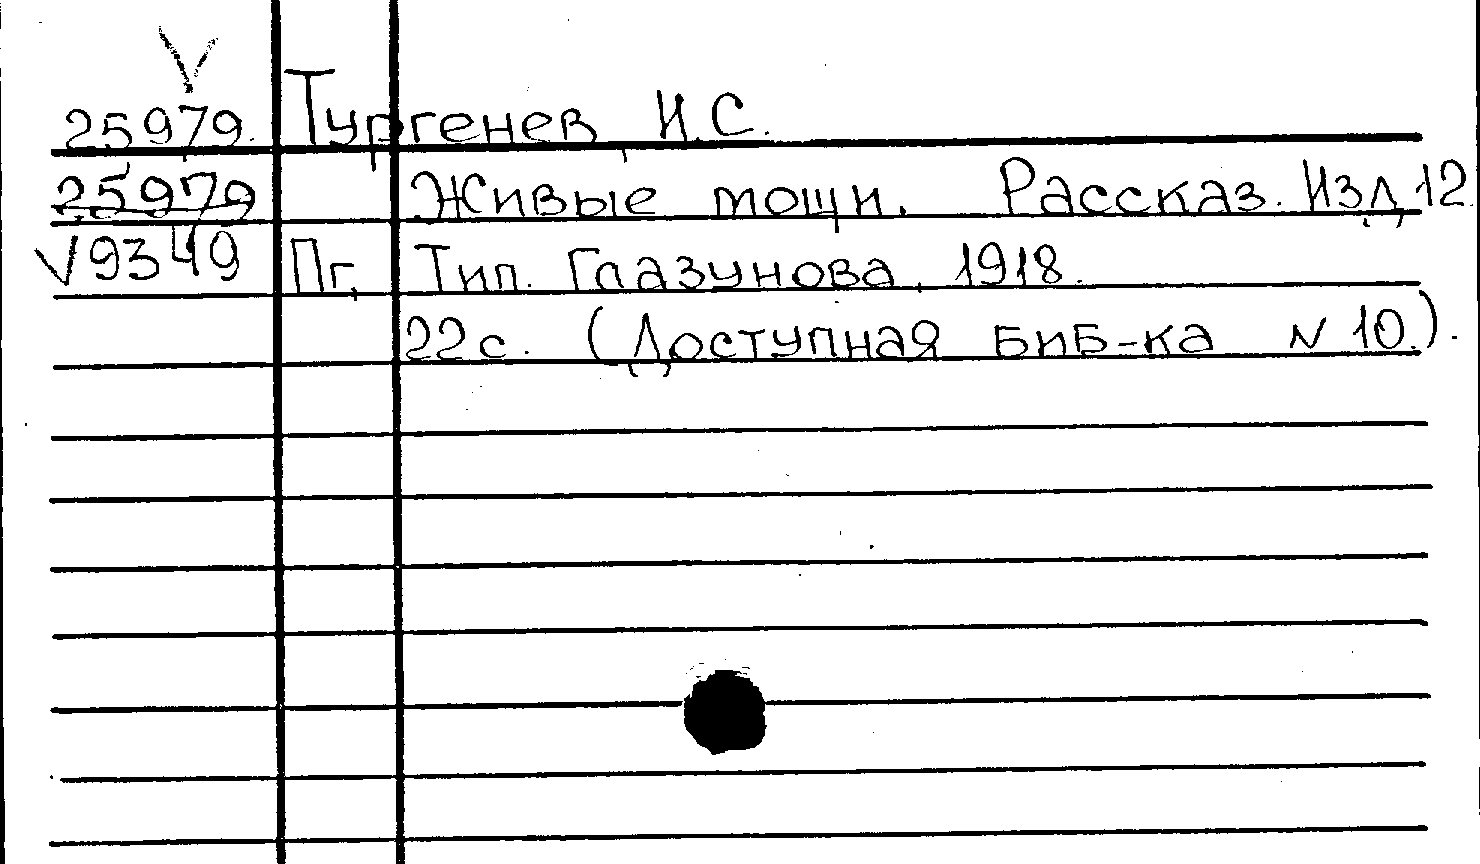 V
25979. Тургенев, И.С.
25979 Живые мощи. Рассказ. Изд, 12.
V9349 Пг, Тип. Глазунова, 1918.
22с. (Доступная биб-ка N 10.).